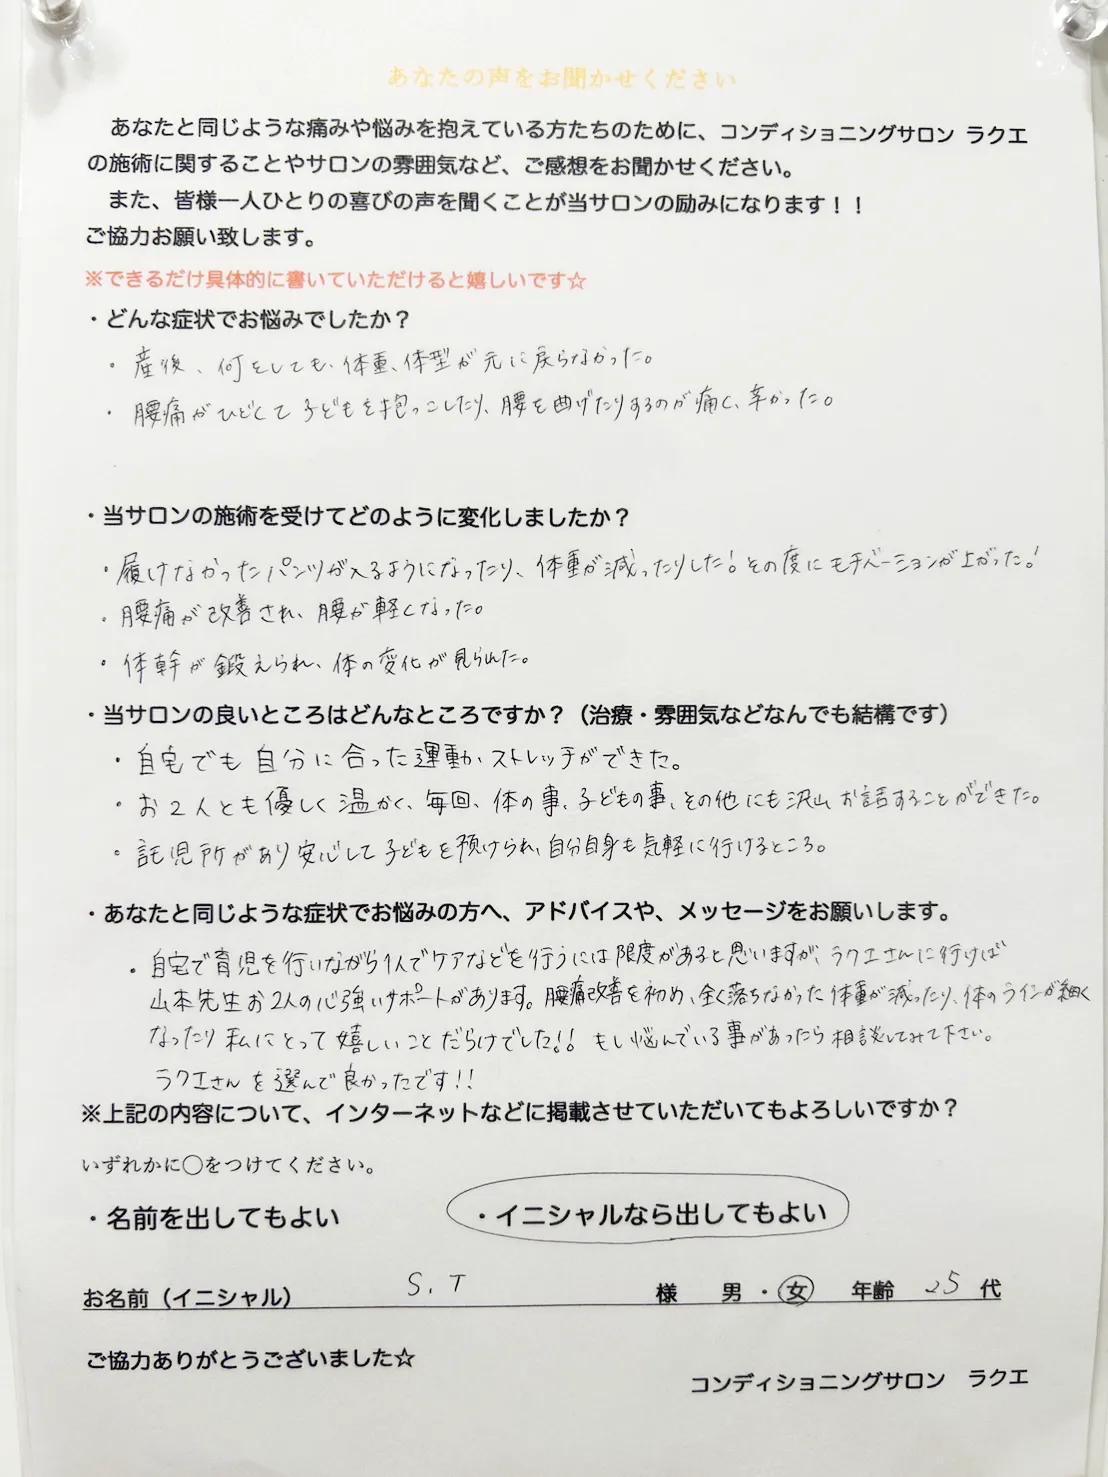 あなたの声をお聞かせください
あなたと同じような痛みや悩みを抱えている方たちのために、コンディショニングサロン ラクエ
の施術に関することやサロンの雰囲気など、ご感想をお聞かせください。
また、皆様一人ひとりの喜びの声を聞くことが当サロンの励みになります！！
ご協力お願い致します。
※できるだけ具体的に書いていただけると嬉しいです☆
・どんな症状でお悩みでしたか？
・産後、何をしても、体重、体型が元に戻らなかった。
・腰痛がひどくて子どもを抱っこしたり、腰を曲げたりするのが痛く、辛かった。
・当サロンの施術を受けてどのように変化しましたか？
・履けなかったパンツが入るようになったり、体重が減ったりした！その度にモチベーションが上がった！
・腰痛が改善され、腰が軽くなった。
・体幹が鍛えられ、体の変化が見られた。
・当サロンの良いところはどんなところですか？（治療・雰囲気などなんでも結構です）
・自宅でも自分に合った運動、ストレッチができた。
・お2人とも優しく温かく、毎回、体の事、子どもの事、その他にも沢山お話することができた。
・託児所があり安心して子どもを預けられ、自分自身も気軽に行けるところ。
・あなたと同じような症状でお悩みの方へ、アドバイスや、メッセージをお願いします。
・自宅で育児を行いながら1人でケアなどを行うには限度があると思いますが、ラクエさんに行けば
山本先生お2人の心強いサポートがあります。腰痛改善を初め、全く落ちなかった体重が減ったり、体のラインが細く
なったり私にとって嬉しいことだらけでした！！もし悩んでいる事があったら相談してみて下さい。
ラクエさんを選んで良かったです！！
※上記の内容について、インターネットなどに掲載させていただいてもよろしいですか？
いずれかに〇をつけてください。
・名前を出してもよい ・イニシャルなら出してもよい
お名前（イニシャル） S.T 様 男・女 年齢 25 代
ご協力ありがとうございました☆
コンディショニングサロン ラクエ